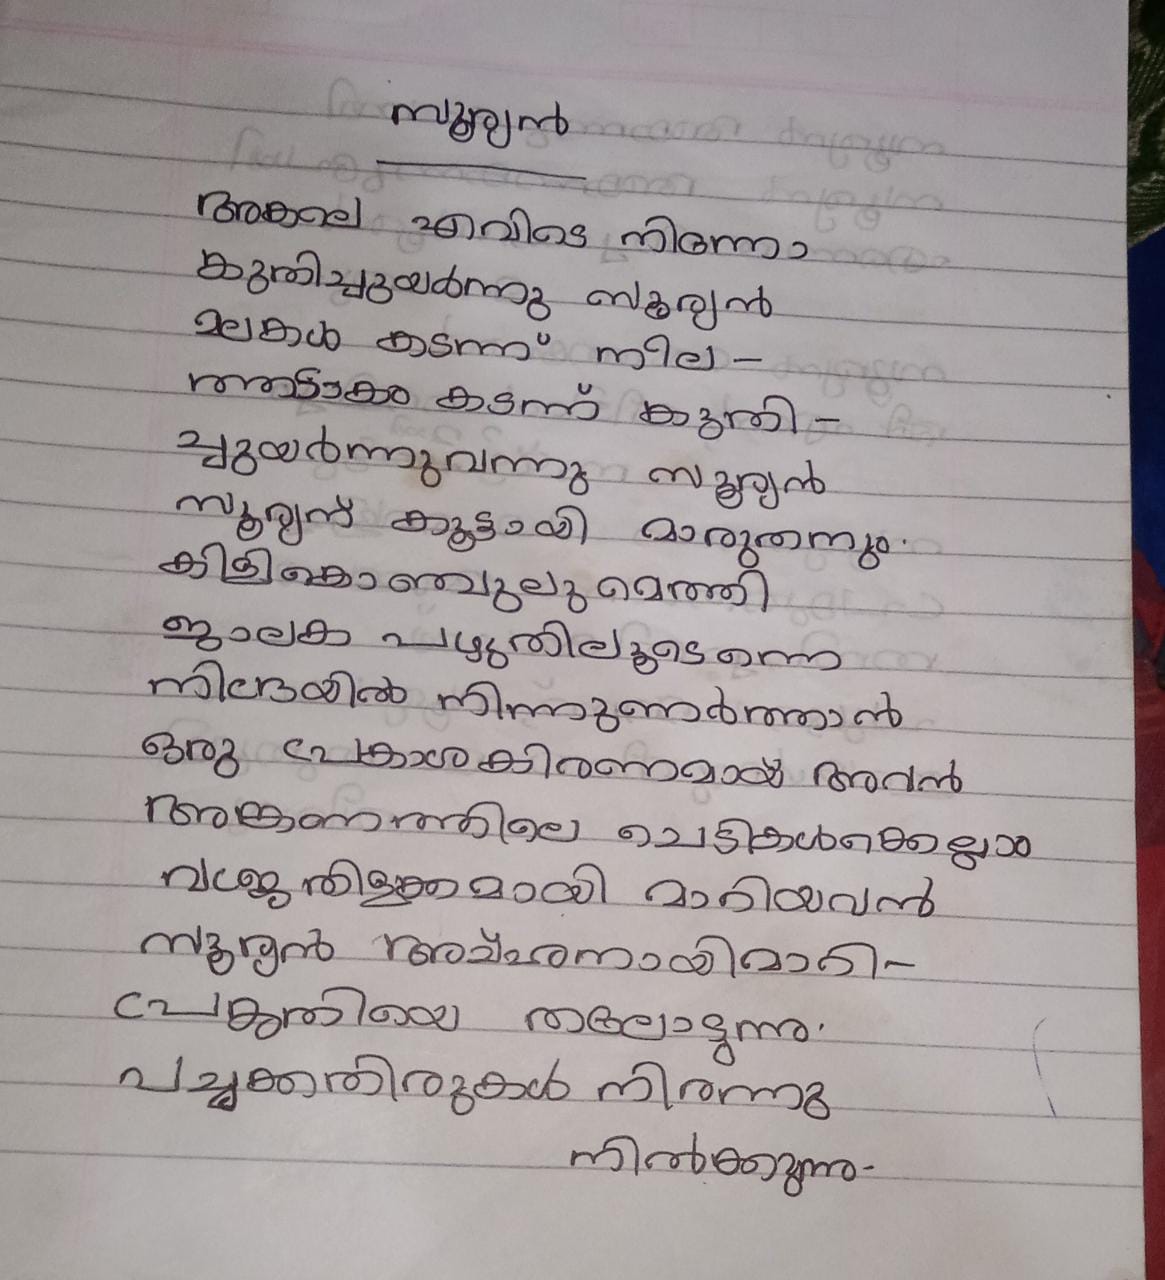 സൂര്യൻ
അകലെ എവിടെ നിന്നോ
കുതിച്ചുയർന്നു സൂര്യൻ
മലകൾ കടന്ന് നീല-
ത്തടാകം കടന്ന് കുതി-
ച്ചുയർന്നുവന്നു സൂര്യൻ
സൂര്യന് കൂട്ടായി മാരുതനും.
കിളികൊഞ്ചലുമെത്തി
ജാലക പഴുതിലൂടെന്നെ
നിദ്രയിൽ നിന്നുണർത്താൻ
ഒരു പ്രകാശകിരണമായ് അവൻ
അങ്കണത്തിലെ ചെടികൾക്കെല്ലാം
വജ്രതിളക്കമായി മാറിയവൻ
സൂര്യൻ മാറി-
പ്രകൃതിയെ തലോടുന്നു.
പച്ചക്കതിരുകൾ നിരന്നു
നിൽക്കുന്നു.